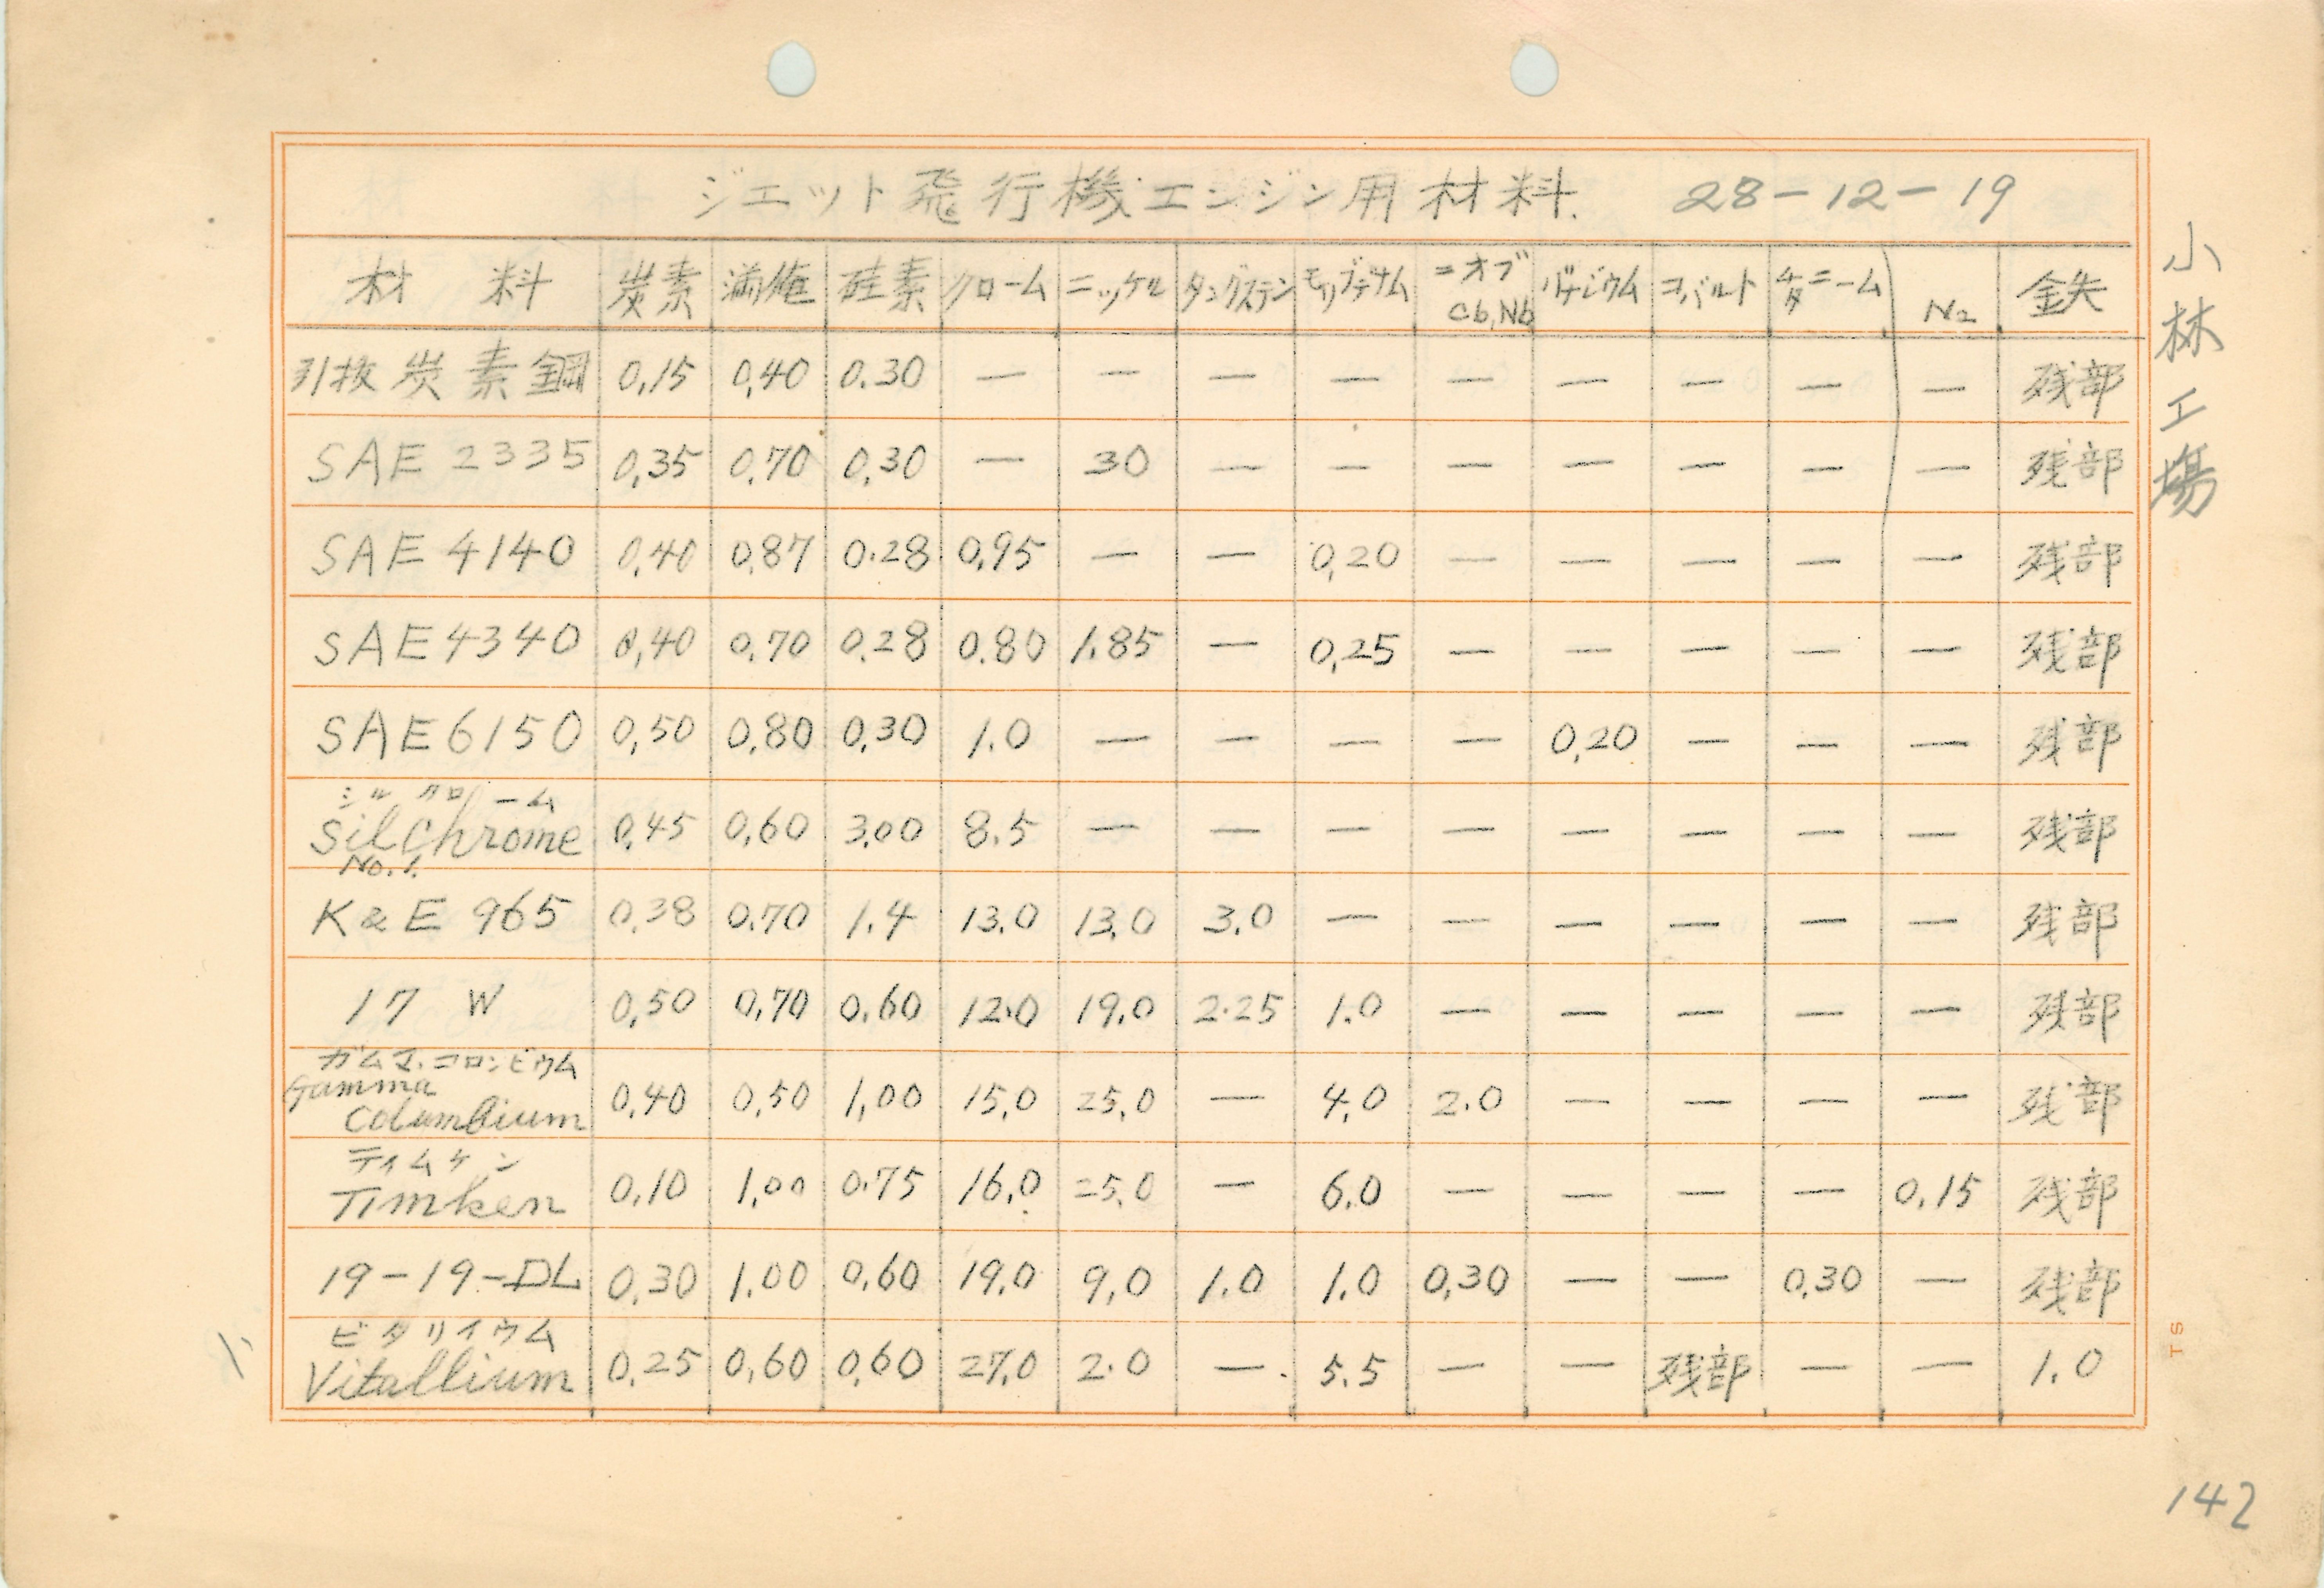 ジエット飛行機エンジン用材料. 28-12-19
材 料 炭素 満俺 硅素 クローム ニッケル タングステン モリブデナム ニオブ Cb,Nb バナジウム コバルト チタニーム N2 鉄
引抜炭素鋼 0,15 0,40 0.30 — — — — — — — — — 残部
SAE 2335 0,35 0,70 0,30 — 30 — — — — — — — 残部
SAE 4140 0,40 0,87 0.28 0,95 — — 0,20 — — — — — 残部
SAE 4340 0,40 0,70 0.28 0.80 1.85 — 0,25 — — — — — 残部
SAE 6150 0,50 0,80 0,30 1.0 — — — — 0,20 — — — 残部
シルクローム
Silchrome 0,45 0,60 3,00 8.5 — — — — — — — — 残部
No.1.
K & E 965 0,38 0.70 1.4 13.0 13,0 3.0 — — — — — — 残部
17 W 0,50 0,70 0.60 12.0 19.0 2.25 1.0 — — — — — 残部
ガムマ.コロンビウム
Gamma
Columbium 0,40 0,50 1,00 15,0 25,0 — 4,0 2.0 — — — — 残部
ティムケン
Timken 0,10 1,00 0.75 16,0 25.0 — 6.0 — — — — 0,15 残部
19-19-DL 0,30 1,00 0,60 19,0 9,0 1.0 1.0 0,30 — — 0,30 — 残部
ビタリイウム
Vitallium 0,25 0,60 0,60 27,0 2.0 — 5.5 — — 残部 — — 1.0
小林工場
TS
142